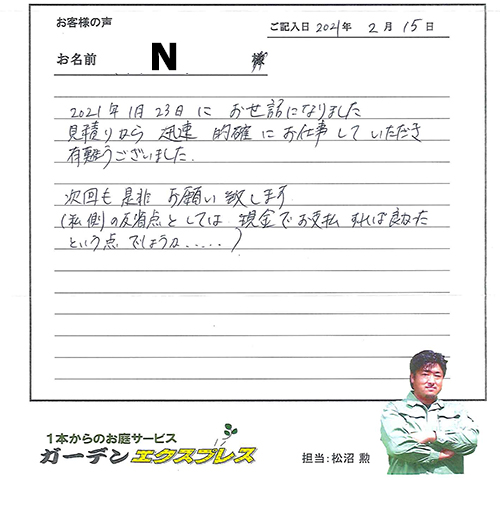 お客様の声
ご記入日 2021年 2月 15日
お名前 N 様
2021年1月23日に お世話になりました
見積りから 迅速 的確に お仕事して いただき
有難うございました.
次回も 是非 お願い致します
(私側)の反省点としては 現金でお支払 すれば良かた
という点 でしょうか.....)
1本からのお庭サービス
ガーデンエクスプレス
担当:松沼 勲